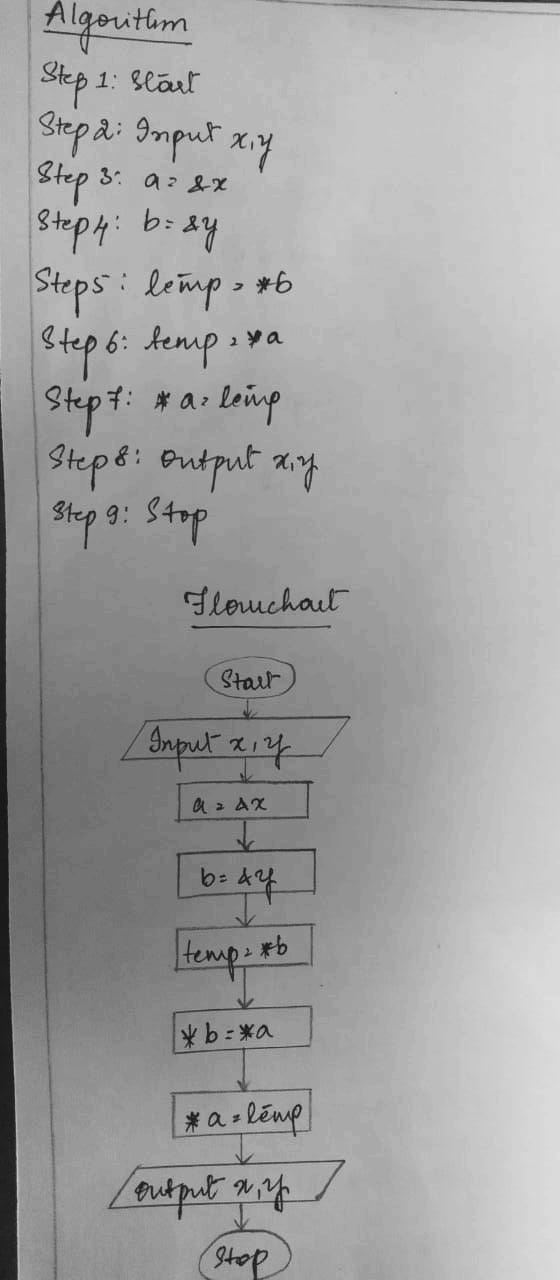 Algorithm
Step 1: Start
Step 2: Input x,y
Step 3: a = &x
Step 4: b = &y
Step 5: temp = *b
Step 6: temp = *a
Step 7: *a = temp
Step 8: Output x,y
Step 9: Stop
Flowchart
Start
Input x,y
a = &x
b = &y
temp = *b
*b = *a
*a = temp
Output x,y
Stop